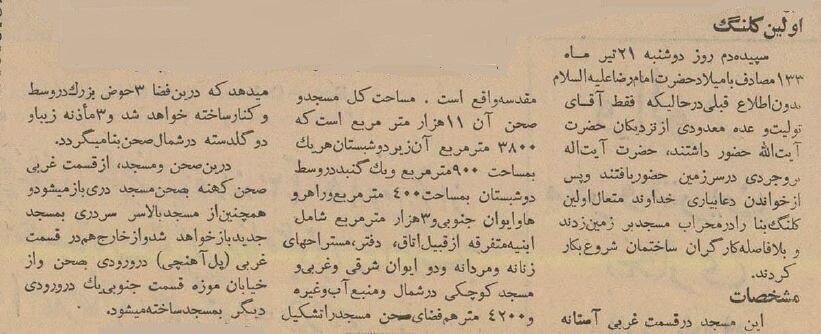 اولین کلنگ
سپیده‌دم روز دوشنبه ۲۱ تیر ماه
۱۳۳ مصادف با میلاد حضرت امام رضا علیه السلام
بدون اطلاع قبلی در حالیکه فقط آقای
تولیت و عده معدودی از نزدیکان حضرت
آیت‌الله حضور داشتند، حضرت آیت‌اله
بروجردی در سرزمین حضور یافتند و پس
از خواندن دعا بیاری خداوند متعال اولین
کلنگ بنا را در محراب مسجد بر زمین زدند
و بلافاصله کارگران ساختمان شروع بکار
کردند.
مشخصات
این مسجد در قسمت غربی آستانه
مقدسه واقع است . مساحت کل مسجد و
صحن آن ۱۱ هزار متر مربع است که
۳۸۰۰ متر مربع آن زیر دو شبستان هریک
بمساحت ۹۰۰ متر مربع و یک گنبد در وسط
دو شبستان بمساحت ۴۰۰ متر مربع و راهرو
ها و ایوان جنوبی و ۳ هزار متر مربع شامل
ابنیه متفرقه از قبیل اتاق، دفتر، مستراحهای
زنانه و مردانه و دو ایوان شرقی و غربی و
مسجد کوچکی در شمال و منبع آب و غیره
و ۴۲۰۰ متر هم فضای صحن مسجد را تشکیل
میدهد که در بن فضا ۳ حوض بزرگ در وسط
و کنار ساخته خواهد شد و ۳ مأذنه زیبا و
دو گلدسته در شمال صحن بنا میگردد.
در بن صحن و مسجد، از قسمت غربی
صحن کهنه بصحن مسجد دری باز میشود و
همچنین از مسجد بالاسر سردری بمسجد
جدید باز خواهد شد و از خارج هم در قسمت
غربی (پل آهنچی) در ورودی صحن و از
خیابان موزه قسمت جنوبی یك در ورودی
دیگر بمسجد ساخته میشود.